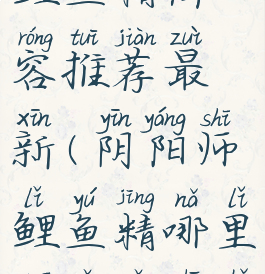 róng tuī jiàn zuì
容推荐最
xīn yīn yáng shī
新(阴阳师
lǐ yú jīng nǎ lǐ
鲤鱼精哪里